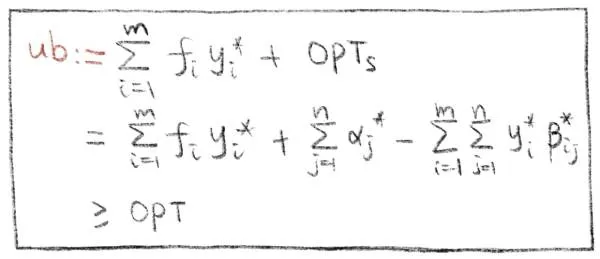 ub := \sum_{i=1}^{m} f_i y_i^* + OPT_s
= \sum_{i=1}^{m} f_i y_i^* + \sum_{j=1}^{n} \alpha_j^* - \sum_{i=1}^{m} \sum_{j=1}^{n} y_i^* \beta_{ij}^*
≥ OPT